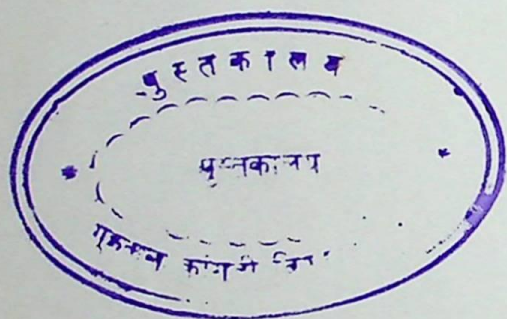 पुस्तकालय
पुस्तकालय
गुरुकुल कांगड़ी